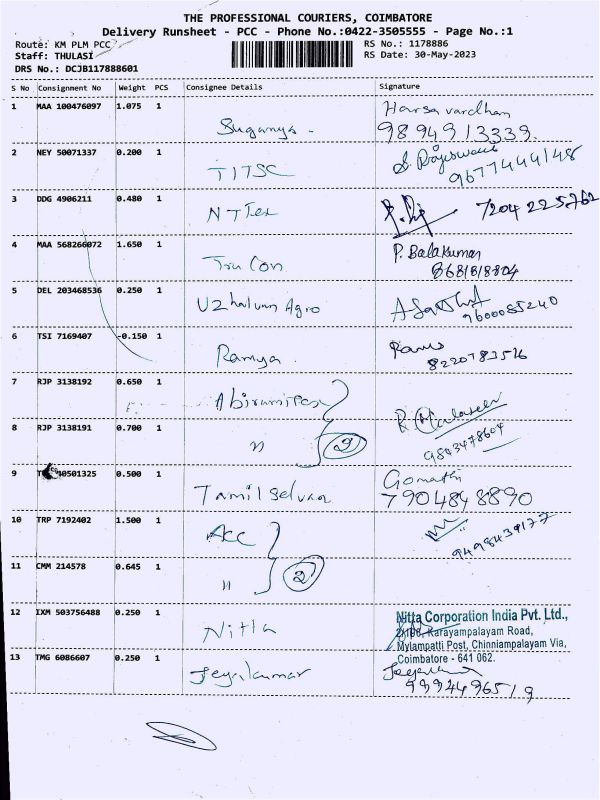 THE PROFESSIONAL COURIERS, COIMBATORE
Delivery Runsheet - PCC - Phone No.:0422-3505555 - Page No.:1
Route: KM PLM PCC
RS No.: 1178886
Staff: THULASI
RS Date: 30-May-2023
DRS No.: DCJB117888601
S No Consignment No Weight PCS Consignee Details Signature
1 MAA 100476097 1.075 1 Suganya - Harsavardhan
9894913339.
2 NEY 50071337 0.200 1 TITSC
9677444148
3 DDG 4906211 0.480 1 NTTex 7204225762
4 MAA 568266072 1.650 1 Tru Con P. Balakumar
8681818804
5 DEL 203468536 0.250 1 Uzhalvan Agro
9600085240
6 TSI 7169407 0.150 1 Ramya.
8220783516
7 RJP 3138192 0.650 1 Abirami Tex
8 RJP 3138191 0.700 1 " 2
9843478604
9 0501325 0.500 1 Tamilselvan Gomathi
7904848890
10 TRP 7192402 1.500 1 ACC
9498439177
11 CMM 214578 0.645 1 " 2
12 IXM 503756488 0.250 1 Nitta Nitta Corporation India Pvt. Ltd.,
Karayampalayam Road,
Mylampatti Post, Chinniampalayam Via,
Coimbatore - 641 062.
13 TMG 6086607 0.250 1 Jeyakumar
9994496519